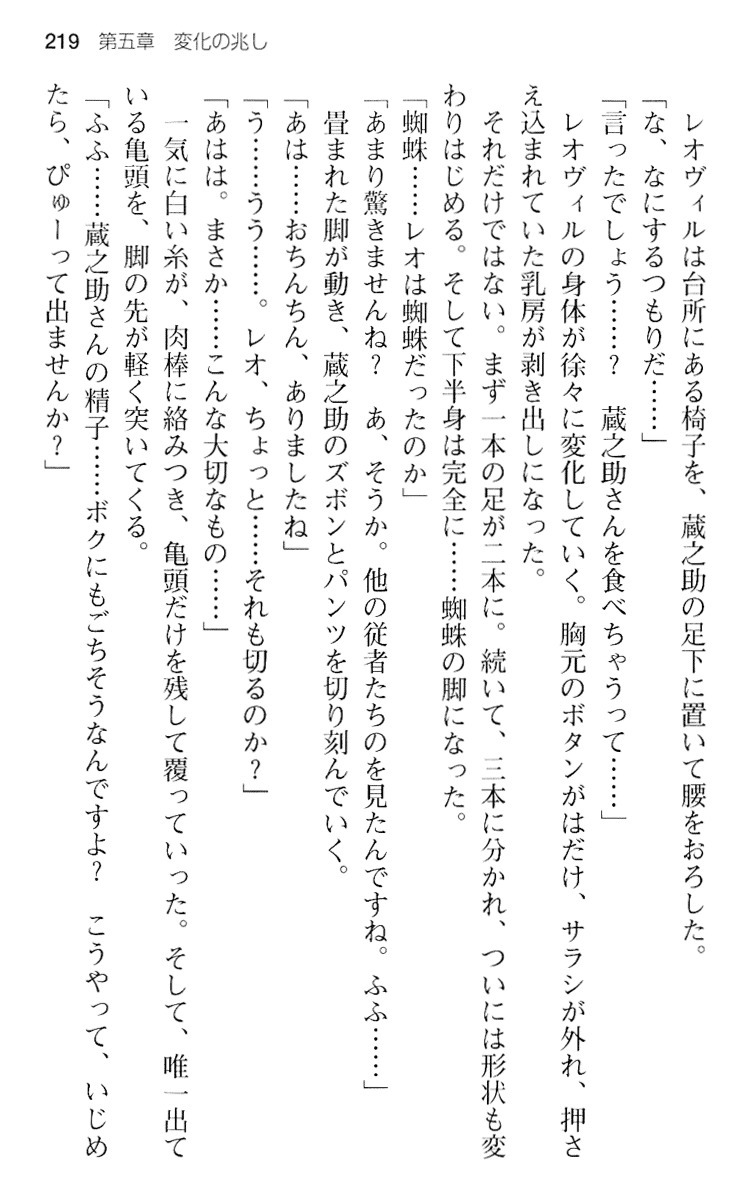 219　第五章　変化の兆し
　レオヴィルは台所にある椅子を、蔵之助の足下に置いて腰をおろした。
「な、なにするつもりだ……」
「言ったでしょう……？　蔵之助さんを食べちゃうって……」
　レオヴィルの身体が徐々に変化していく。胸元のボタンがはだけ、サラシが外れ、押さ
え込まれていた乳房が剥き出しになった。
　それだけではない。まず一本の足が二本に。続いて、三本に分かれ、ついには形状も変
わりはじめる。そして下半身は完全に……蜘蛛の脚になった。
「蜘蛛……レオは蜘蛛だったのか」
「あまり驚きませんね？　あ、そうか。他の従者たちのを見たんですね。ふふ……」
　畳まれた脚が動き、蔵之助のズボンとパンツを切り刻んでいく。
「あは……おちんちん、ありましたね」
「う……うう……。レオ、ちょっと……それも切るのか？」
「あはは。まさか……こんな大切なもの……」
　一気に白い糸が、肉棒に絡みつき、亀頭だけを残して覆っていった。そして、唯一出て
いる亀頭を、脚の先が軽く突いてくる。
「ふふ……蔵之助さんの精子……ボクにもごちそうなんですよ？　こうやって、いじめ
たら、ぴゅーって出ませんか？」